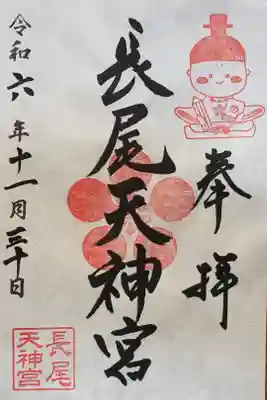 奉拝
長尾天神宮
令和六年十一月三十日
長尾
天神宮